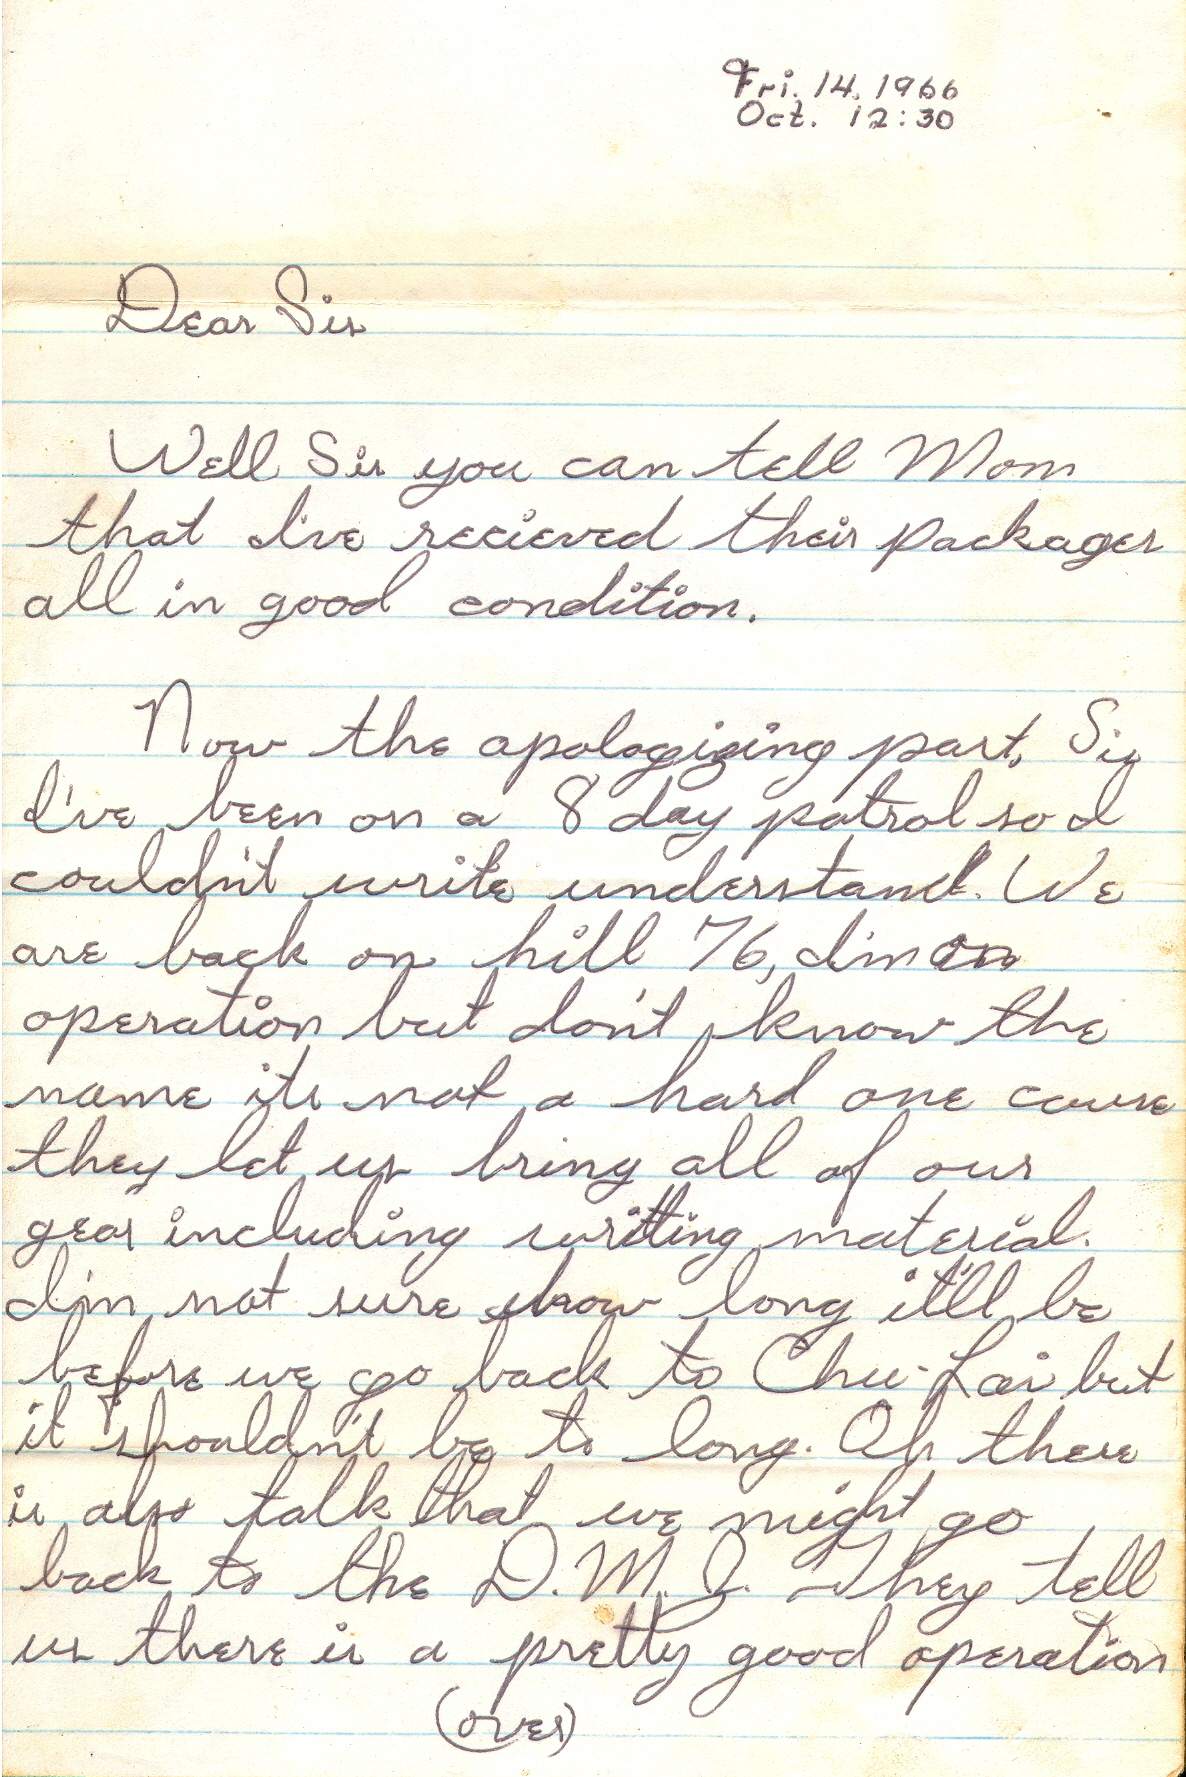 Fri. 14, 1966
Oct. 12:30
Dear Sir
Well Sir you can tell Mom
that I've recieved their packages
all in good condition.
Now the apologizing part, Sir
I've been on a 8 day patrol so I
couldn't write understand. We
are back on hill 76, I'm on
operation but don't know the
name its not a hard one cause
they let us bring all of our
gear including writting material.
I'm not sure how long it'll be
before we go back to Chu-Lai but
it shouldn't be to long. Oh there
is also talk that we might go
back to the D.M.Z. They tell
us there is a pretty good operation
(over)